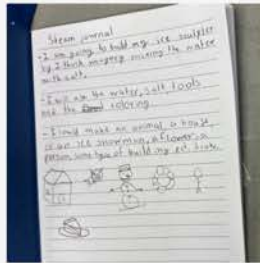 Steam journal
- I am going to build my ice sculpter
by I think mixing the water
with salt.
- I will use the water, salt tools
and the coloring.
- I could make an animal, a house,
an ice snowman, a flower, a
person, some type of building